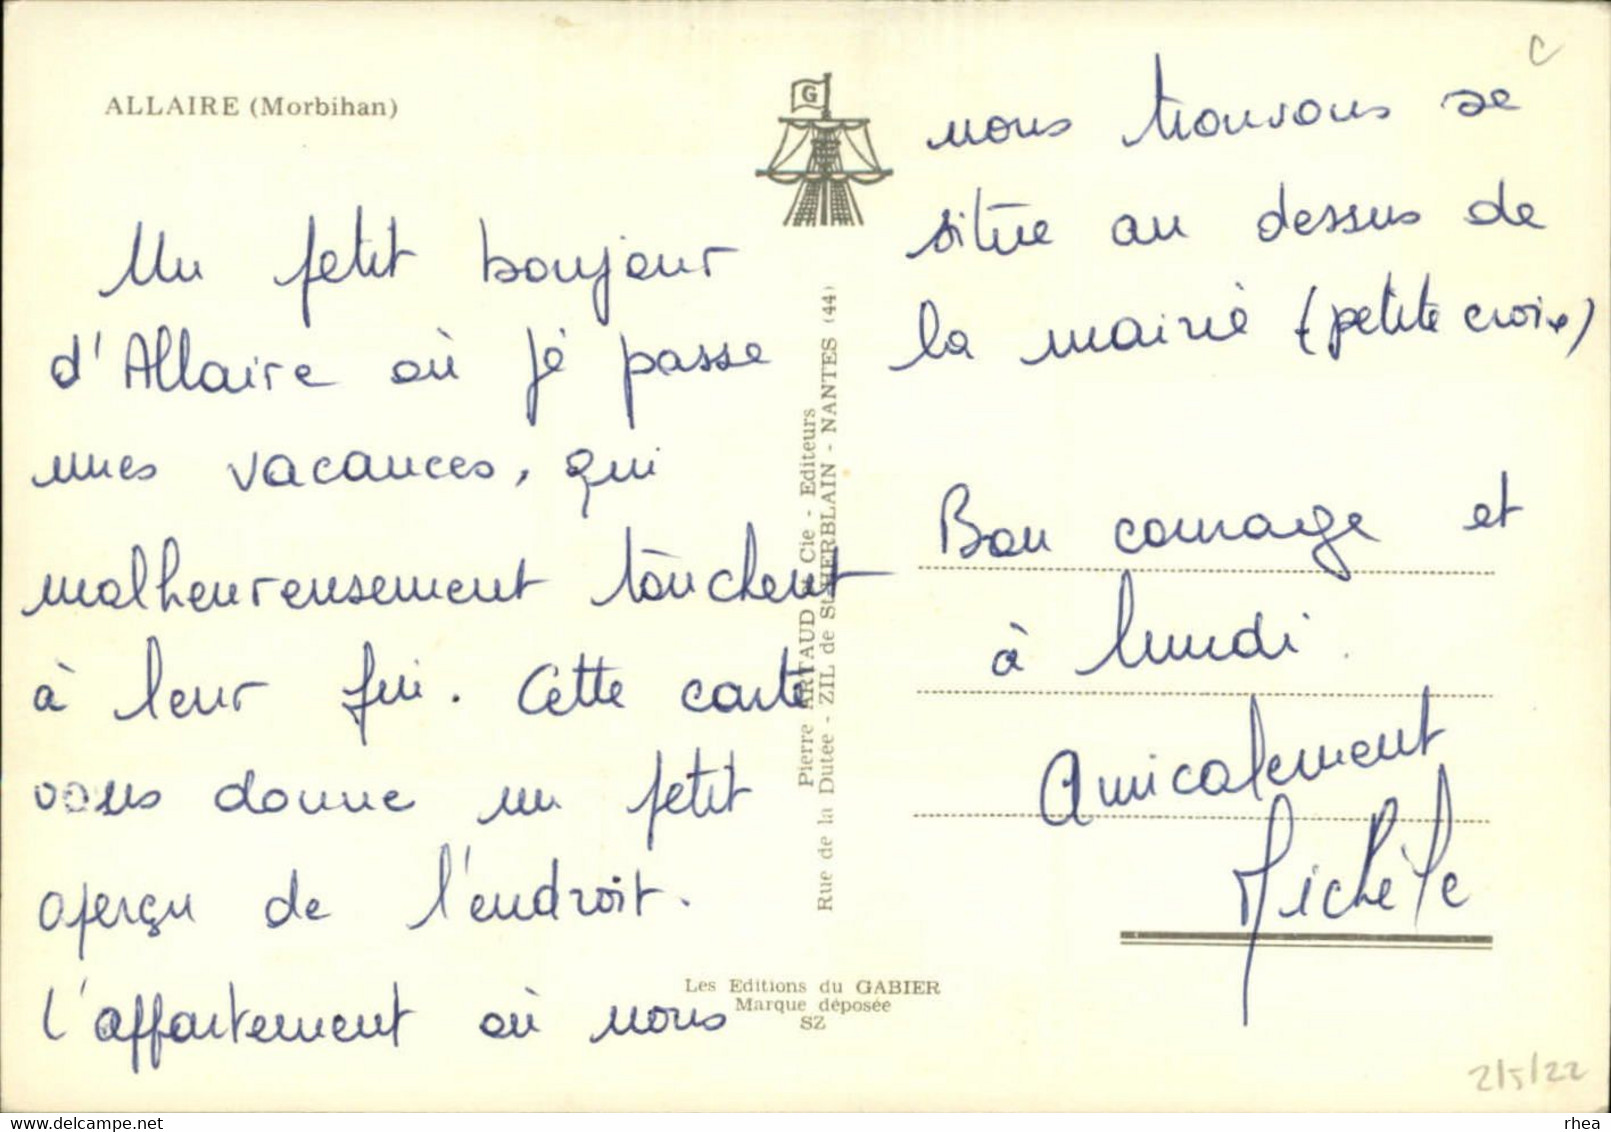 ALLAIRE (Morbihan)
G
Un petit bonjour
d'Allaire où je passe
mes vacances, qui
malheureusement touchent
à leur fin. Cette carte
vous donne un petit
aperçu de l'endroit.
L'appartement où nous
nous trouvons se
situe au dessus de
la mairie (petite croix)
Bon courage et
à lundi.
Amicalement
Michèle
Pierre ARTAUD & Cie - Editeurs
Rue de la Dutee - ZIL de St-HERBLAIN - NANTES (44)
Les Editions du GABIER
Marque déposée
SZ
C
2/5/22
www.delcampe.net
rhea